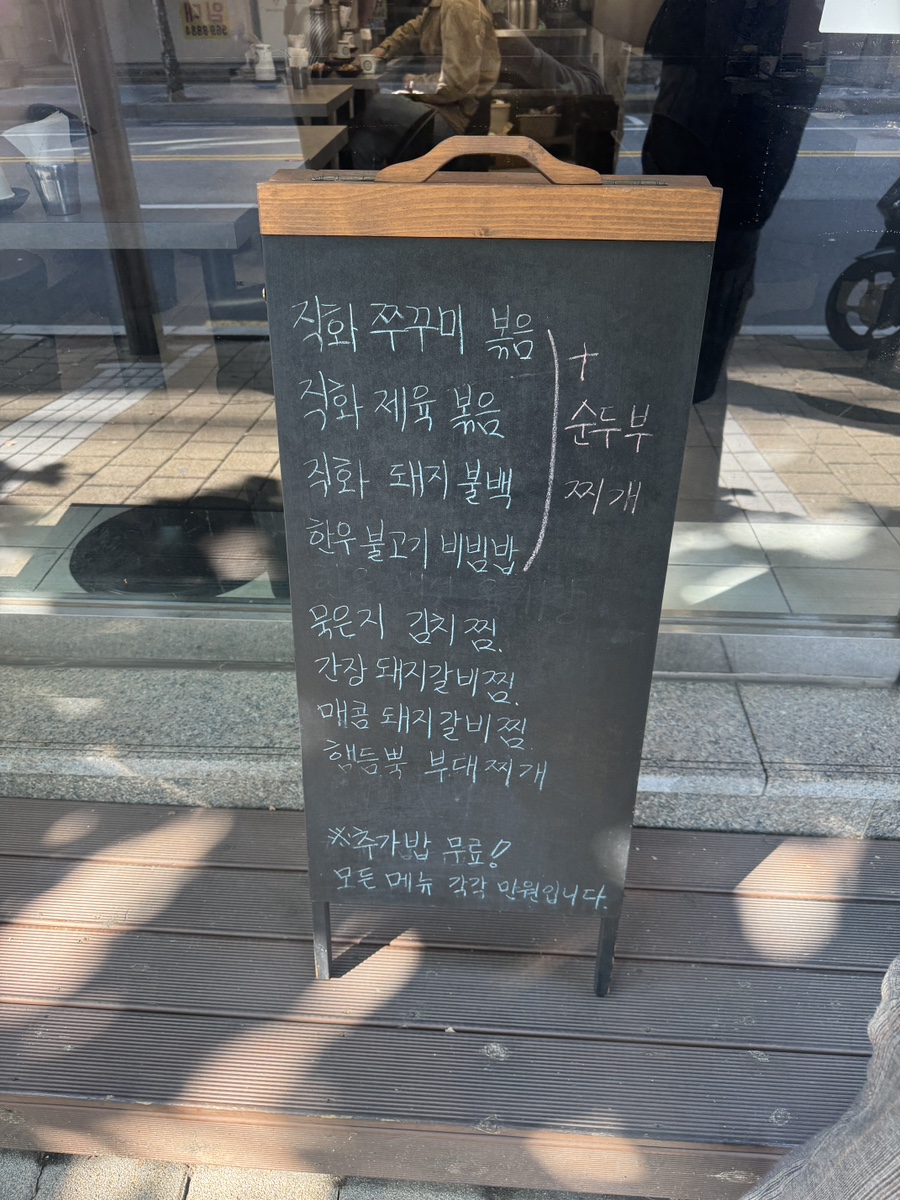 임대
569 8884
직화 쭈꾸미 볶음
직화 제육 볶음
직화 돼지불백
한우불고기 비빔밥
+
순두부
찌개
묵은지 김치찜.
간장 돼지갈비찜.
매콤 돼지갈비찜.
햄듬뿍 부대찌개
※추가밥 무료!
모든 메뉴 각각 만원입니다.